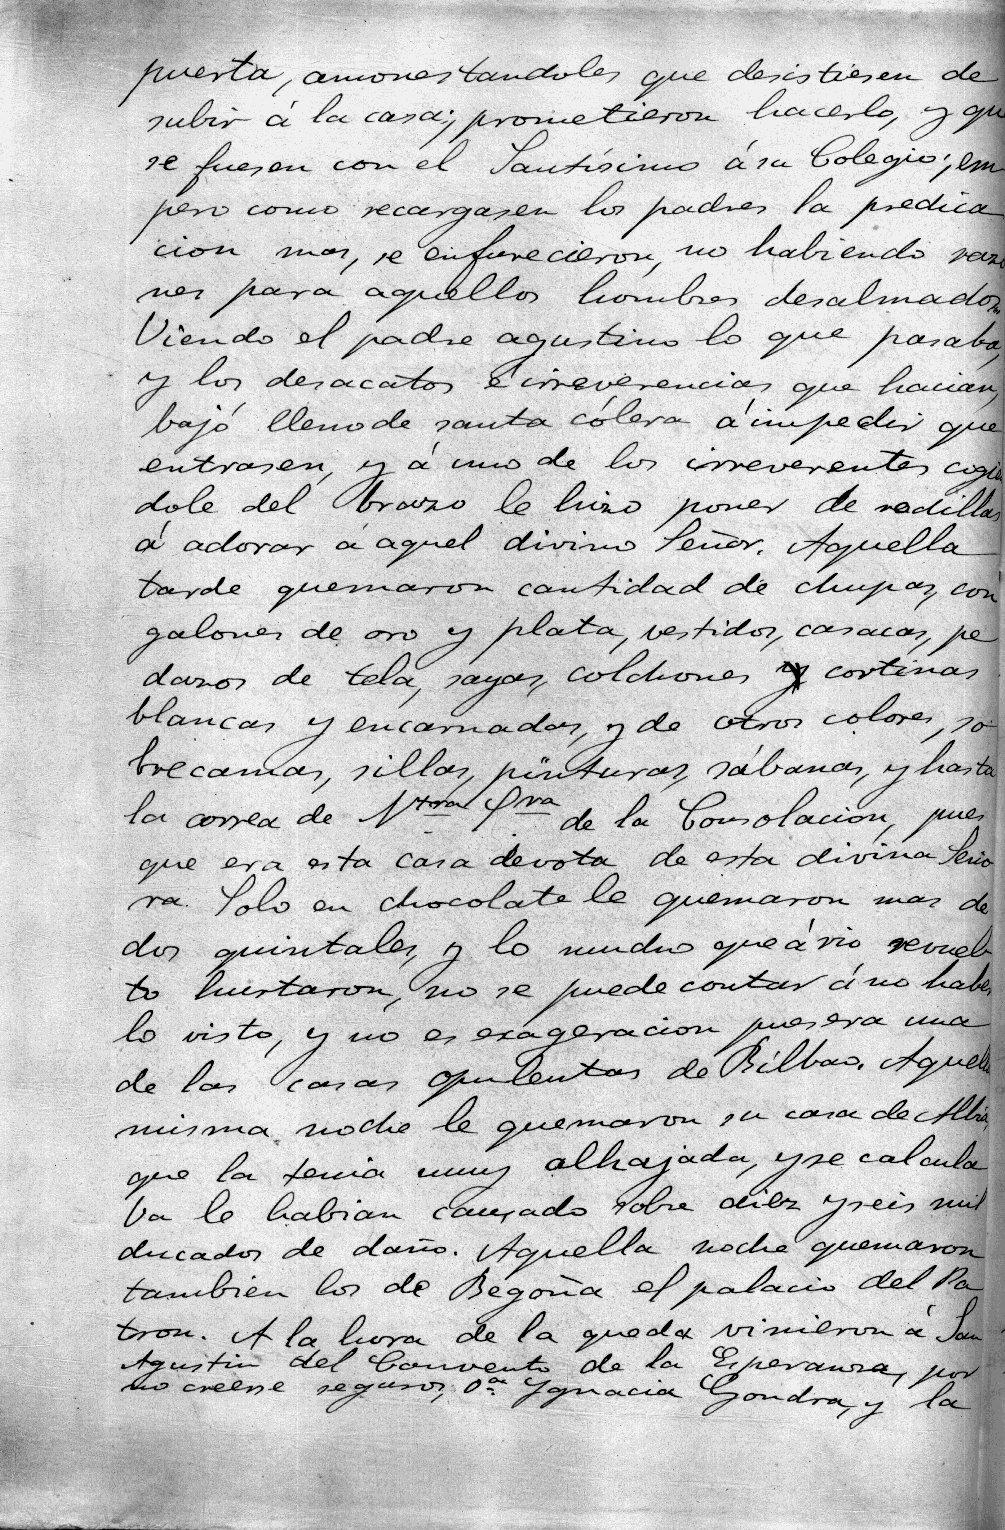 puerta, amonestandoles que desistiesen de
subir á la casa; prometieron hacerlo, y qu
se fuesen con el Santísimo á su Colegio; em
pero como recargasen los padres la predica
cion mas, se enfurecieron, no habiendo razo
nes para aquellos hombres desalmados.
Viendo el padre agustino lo que pasaba,
y los desacatos é irreverencias que hacian,
bajó lleno de santa cólera á impedir que
entrasen, y á uno de los irreverentes cogien
dole del brazo le hizo poner de rodillas
á adorar á aquel divino Señor. Aquella
tarde quemaron cantidad de chupas, con
galones de oro y plata, vestidos, casacas, pe
dazos de tela, sayas, colchones y cortinas
blancas y encarnadas, y de otros colores, so
brecamas, sillas, pinturas, sábanas, y hasta
la correa de Ntra Sra de la Consolacion, pues
que era esta casa devota de esta divina Seño
ra. Solo en chocolate le quemaron mas de
dos quintales, y lo mucho que á rio revuel
to hurtaron, no se puede contar á no haber
lo visto, y no es exageracion pues era una
de las casas opulentas de Bilbao. Aquella
misma noche le quemaron su casa de Albia,
que la tenia muy alhajada, y se calcula
ba le habian causado sobre diez y seis mil
ducados de daño. Aquella noche quemaron
tambien los de Begoña el palacio del Pa
tron. A la hora de la queda vinieron á San
Agustin del Convento de la Esperanza, por
no creerse seguros, Da Ygnacia Gondra, y la